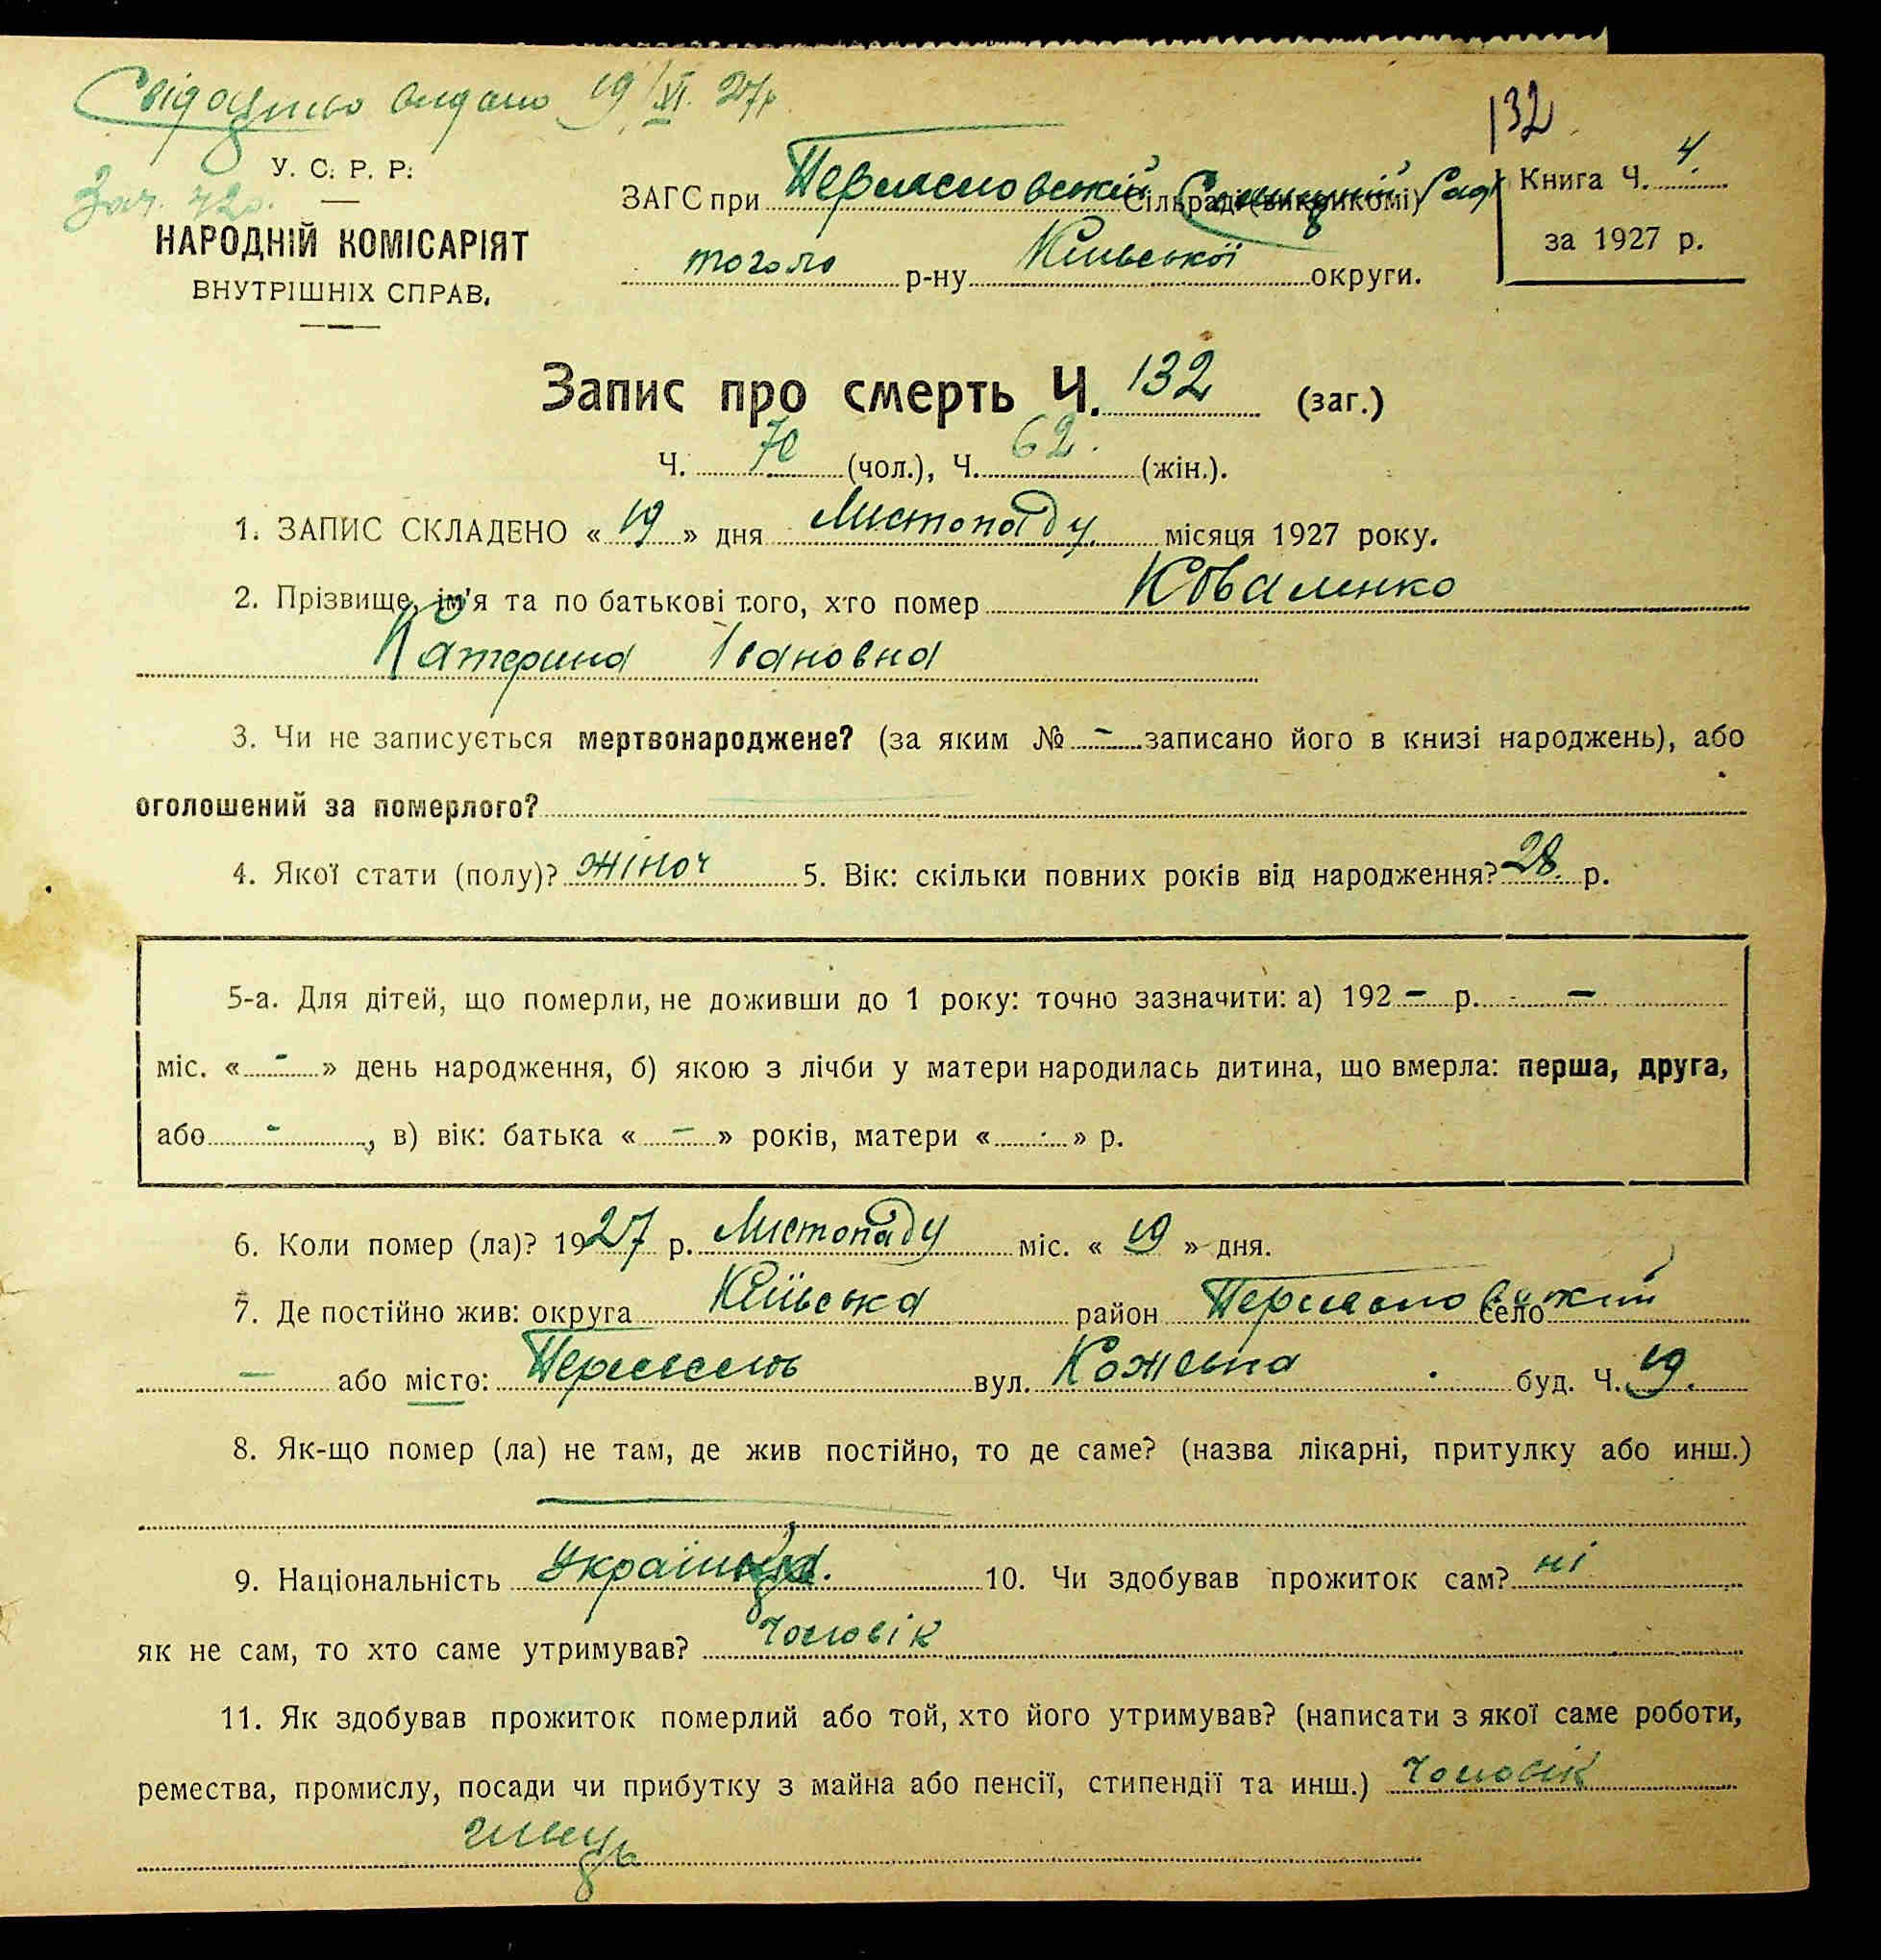 Свідоцтво видано 19/XI. 27р.
132
У. С. Р. Р.
НАРОДНІЙ КОМІСАРІЯТ
ВНУТРІШНІХ СПРАВ.
ЗАГС при Сільраді (викликомі)
р-ну Київської округи.
Книга Ч. 4
за 1927 р.
Запис про смерть Ч. 132 (заг.)
Ч. 70 (чол.), Ч. 62. (жін.).
1. ЗАПИС СКЛАДЕНО « 19 » дня Листопаду місяця 1927 року.
2. Прізвище, ім'я та по батькові того, хто помер Коваленко
Катерина Івановна
3. Чи не записується мертвонароджене? (за яким № - записано його в книзі народжень), або
оголошений за померлого?
4. Якої стати (полу)? жіноч 5. Вік: скільки повних років від народження? 28. р.
5-а. Для дітей, що померли, не доживши до 1 року: точно зазначити: а) 192 - р. -
міс. « - » день народження, б) якою з лічби у матери народилась дитина, що вмерла: перша, друга,
або - , в) вік: батька « - » років, матери « - » р.
6. Коли помер (ла)? 1927 р. Листопаду міс. « 19 » дня.
7. Де постійно жив: округа Київська район село
- або місто: вул. Кожевна буд. Ч. 19.
8. Як-що помер (ла) не там, де жив постійно, то де саме? (назва лікарні, притулку або инш.)
9. Національність 10. Чи здобував прожиток сам? ні
як не сам, то хто саме утримував? Чоловік
11. Як здобував прожиток померлий або той, хто його утримував? (написати з якої саме роботи,
ремества, промислу, посади чи прибутку з майна або пенсії, стипендії та инш.) Чоловік